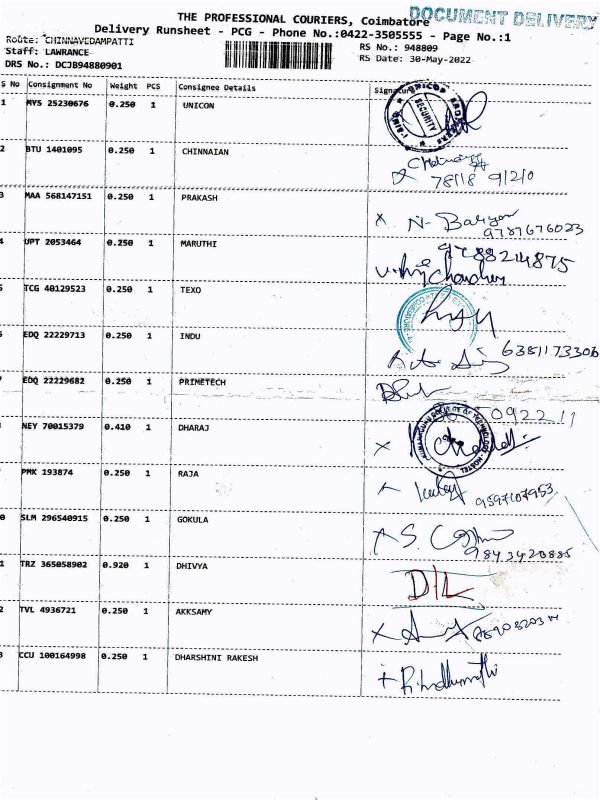 THE PROFESSIONAL COURIERS, Coimbatore
DOCUMENT DELIVERY
Delivery Runsheet - PCG - Phone No.:0422-3505555 - Page No.:1
Route: CHINNAVEDAMPATTI
RS No.: 948809
Staff: LAWRANCE
RS Date: 30-May-2022
DRS No.: DCJB94880901
S No Consignment No Weight PCS Consignee Details Signature
1 MYS 25230676 0.250 1 UNICON
SECURITY
2 BTU 1401095 0.250 1 CHINNAIAN
78118 91210
3 MAA 568147151 0.250 1 PRAKASH
9787676023
4 UPT 2053464 0.250 1 MARUTHI
9788214875
5 TCG 40129523 0.250 1 TEXO
6 EDQ 22229713 0.250 1 INDU
6381173306
EDQ 22229682 0.250 1 PRIMETECH
092211
NEY 70015379 0.410 1 DHARAJ
PMK 193874 0.250 1 RAJA
9597107953
0 SLM 296540915 0.250 1 GOKULA
9843420885
1 TRZ 365058902 0.920 1 DHIVYA
D/L
2 TVL 4936721 0.250 1 AKKSAMY
3 CCU 100164998 0.250 1 DHARSHINI RAKESH